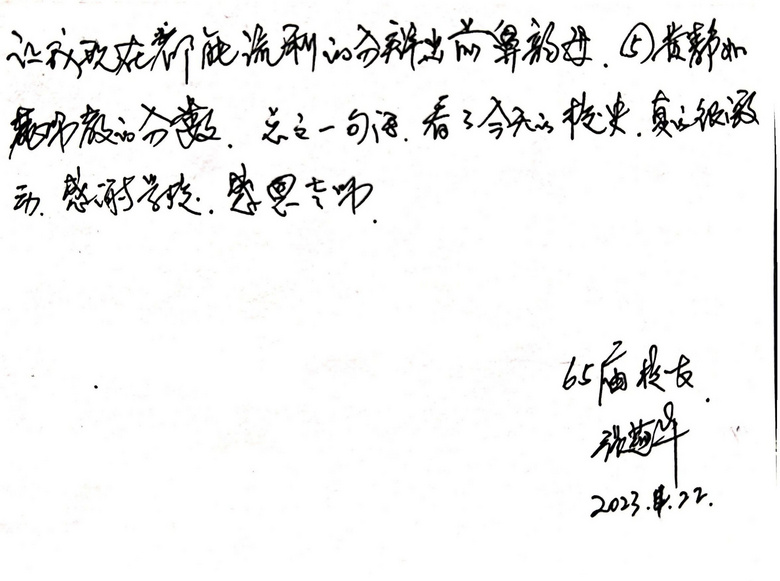 让我现在都能流利的分辩出前鼻韵母.⑤黄静如
教师教的分数.总之一句话.看了今天的校史.真的很激
动.感谢学校.感恩老师.
65届校友.
2023.4.22.